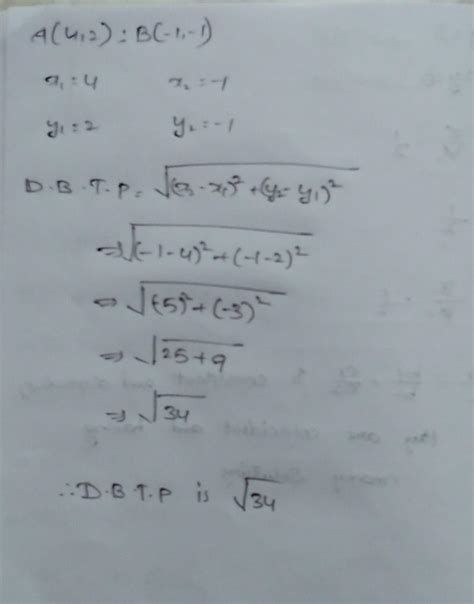 A(4,2) : B(-1,-1)
x₁ = 4 x₂ = -1
y₁ = 2 y₂ = -1
D.B.T.P = √(x₂ - x₁)² + (y₂ - y₁)²
⇒ √(-1-4)² + (-1-2)²
⇒ √(-5)² + (-3)²
⇒ √25+9
⇒ √34
∴ D.B.T.P is √34